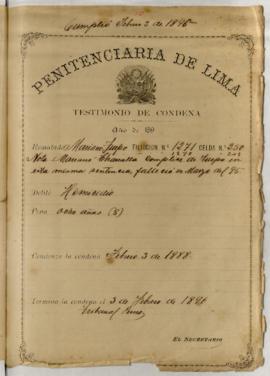 Cumplió Febro 2 de 1896
PENITENCIARIA DE LIMA
TESTIMONIO DE CONDENA
Año de 189
Rematado Mariano Quispe FILIACION N.º 1271 CELDA N.º 250
Nota Mariano complice de Quispe en
esta misma sentencia, fallecio en Marzo del 95
Delito Homicidio
Pena ocho años (8)
Comienza la condena Febro 3 de 1888
Termina la condena el 3 de Febro de 1896
EL SECRETARIO